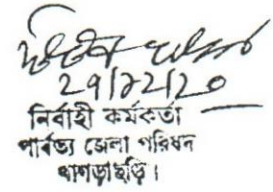 29/12/20
নির্বাহী কর্মকর্তা
পার্বত্য জেলা পরিষদ
খাগড়াছড়ি।